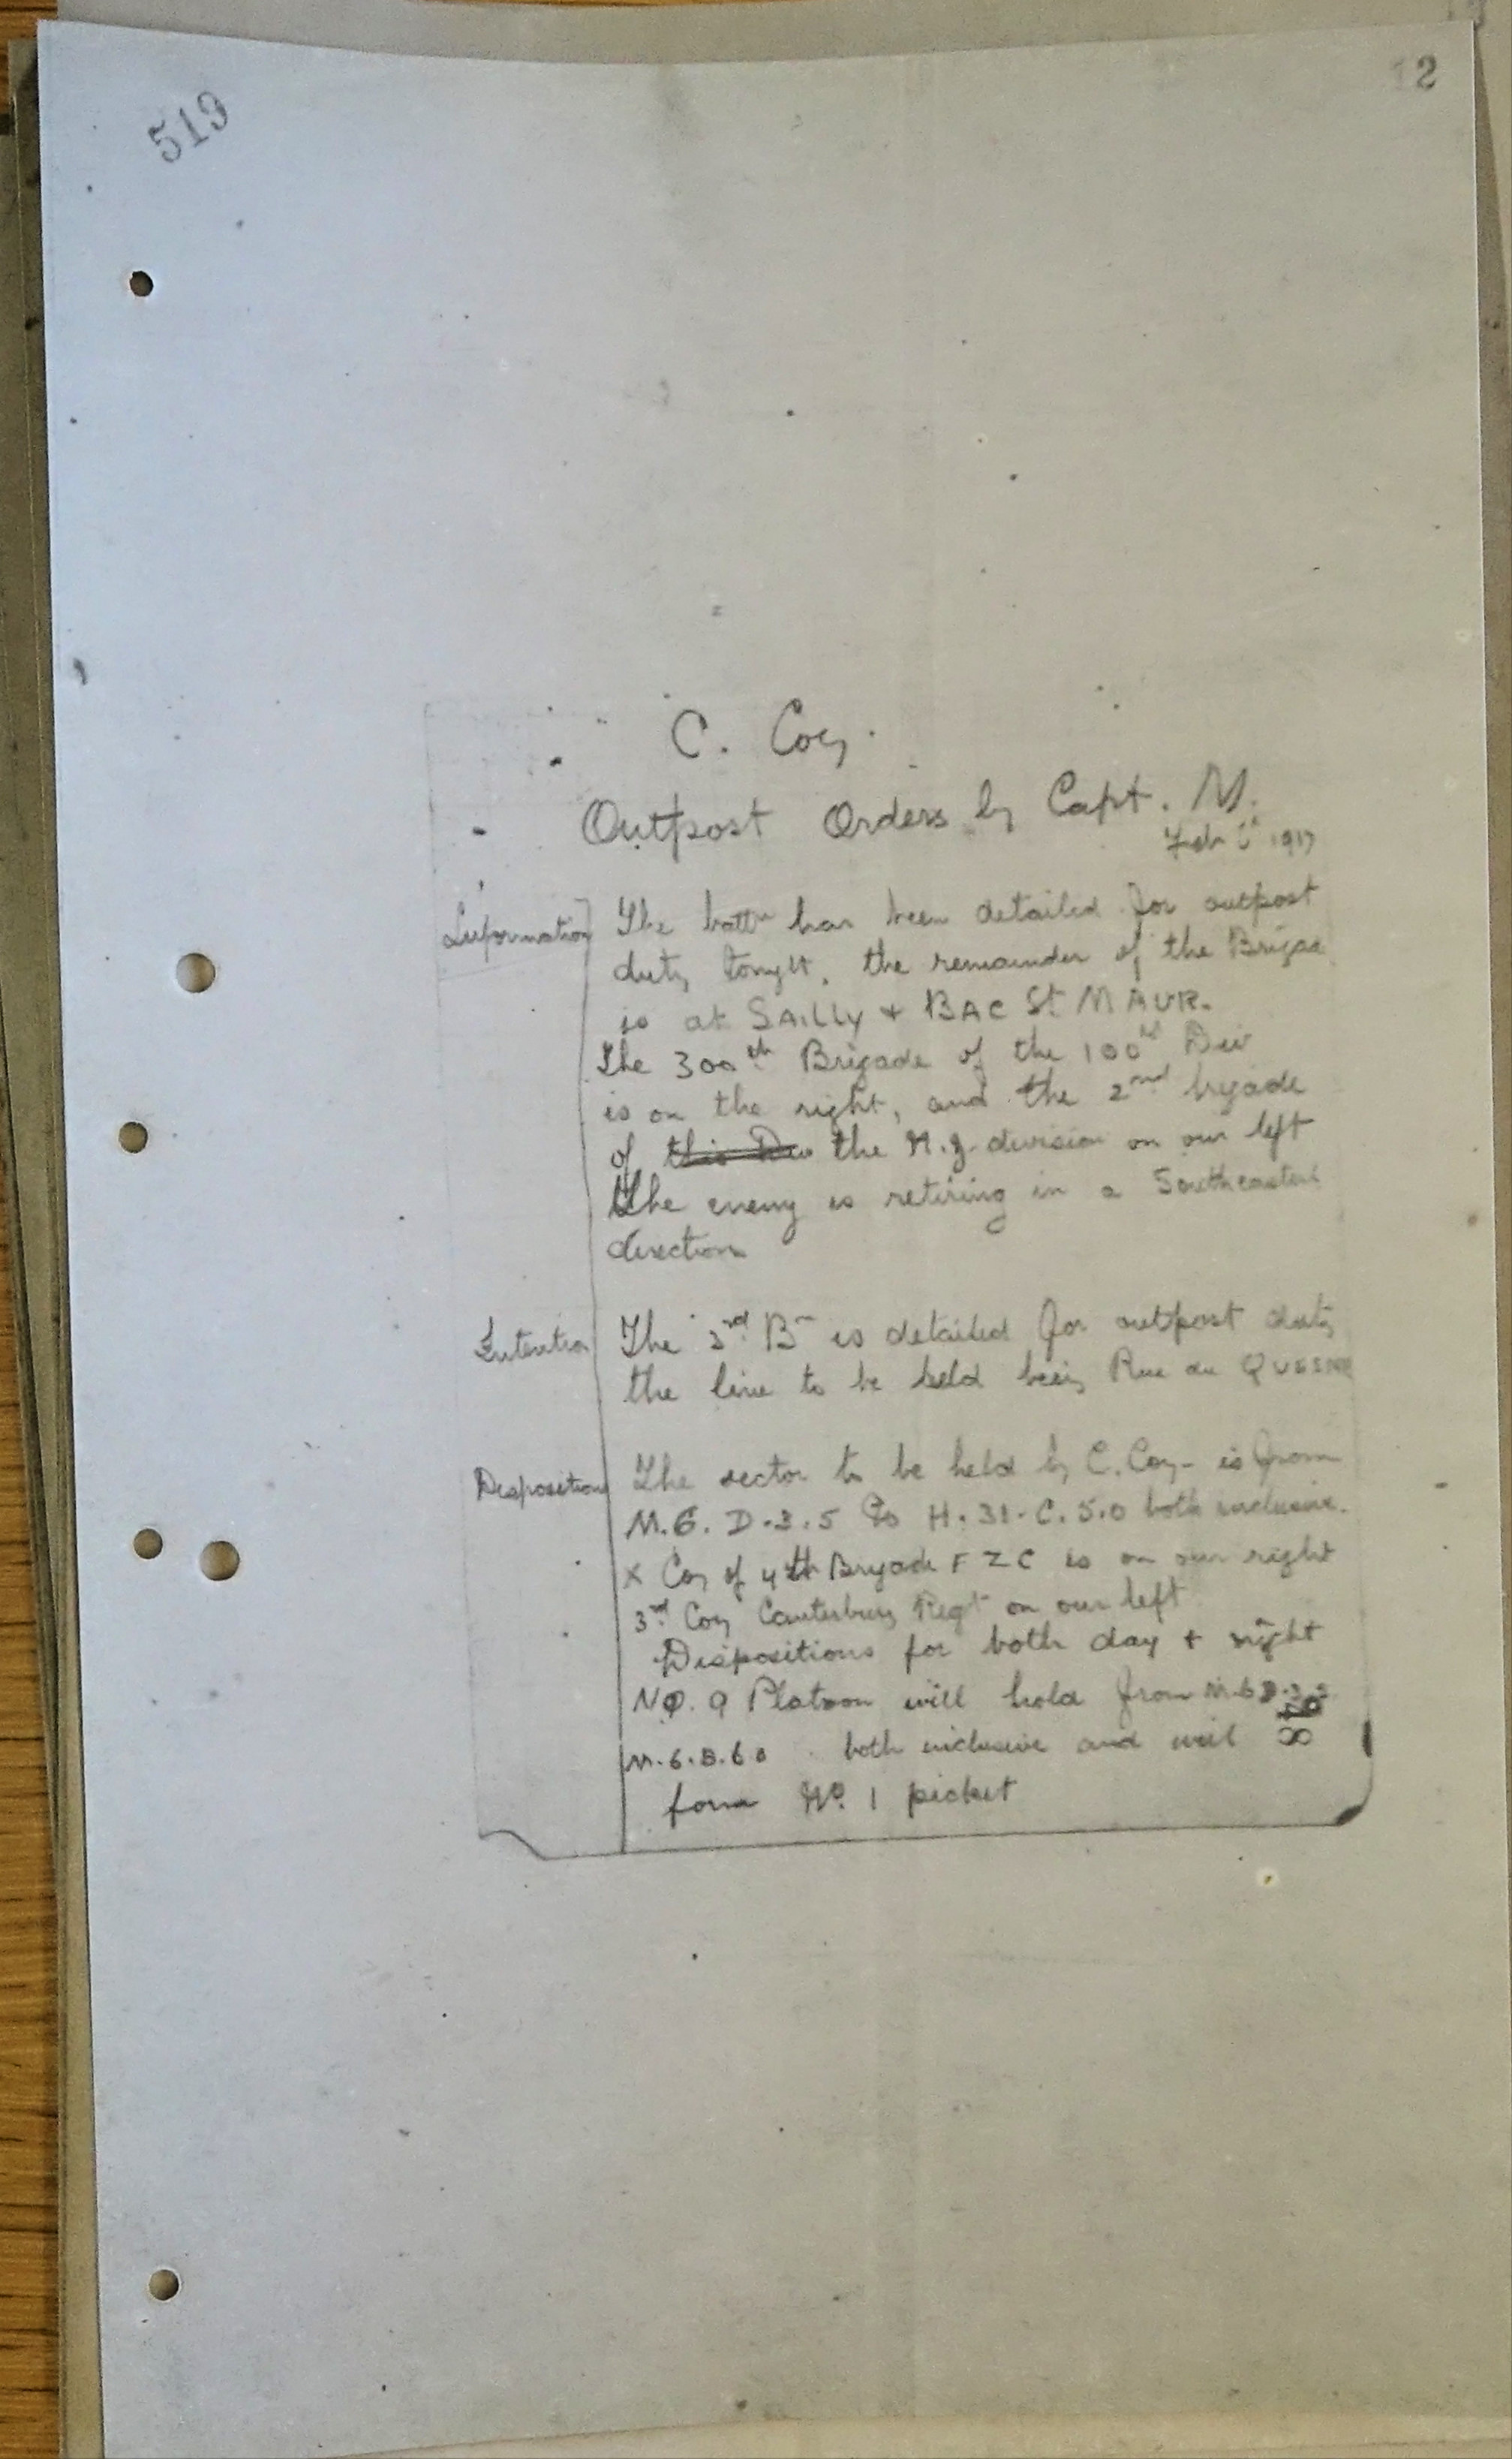 519
12
C. Coy.
Outpost Orders by Capt. M.
Feb 1917
Information
The battn has been detailed for outpost
duty tonght, the remainder of the Brigae
is at SAILLY + BAC St MAUR.
The 300th Brigade of the 100th Div
is on the right, and the 2nd brigade
of this Div the N.Z. division on our left
The enemy is retiring in a Southeastern
direction
Intention
The 3rd Bn is detailed for outpost duty
the line to be held being Rue du QUESNE
Disposition
The sector to be held by C. Coy - is from
M.6. D.3.5 to H.31.C.5.0 both inclusive.
X Coy of 4th Brigade F Z C is on our right
3rd Coy Canterbury Regt on our left
Dispositions for both day + night
No. 9 Platoon will hold from M.6
M.6.B.6 both inclusive and will
form No. 1 picket